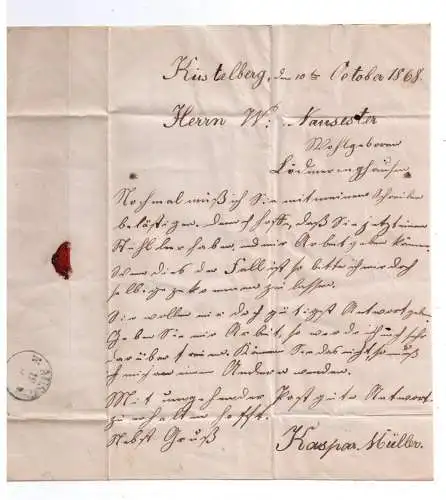 Küstelberg, den 10ten October 1868.
Herrn W. Nansester
Wohlgeboren
Lödmeringhausen
Nochmal muß ich Sie mit meinen Schreiben
belästigen. Denn ich hoffe, daß Sie jetzt einen
Stuhl leer haben, und mir Arbeit geben können.
Wenn dies der Fall ist so bitte ich mer doch
selbige zukommen zu lassen.
Sie wollen mir doch gütigst Antwort geben.
Geben Sie mir Arbeit, so werde ich mich sehr
darüber freuen. Können Sie das nicht, so muß
ich mich an einen Anderen wenden.
Mit umgehender Post gute Antwort
zu erhalten hofft.
Nebst Gruß Kaspar Müller.